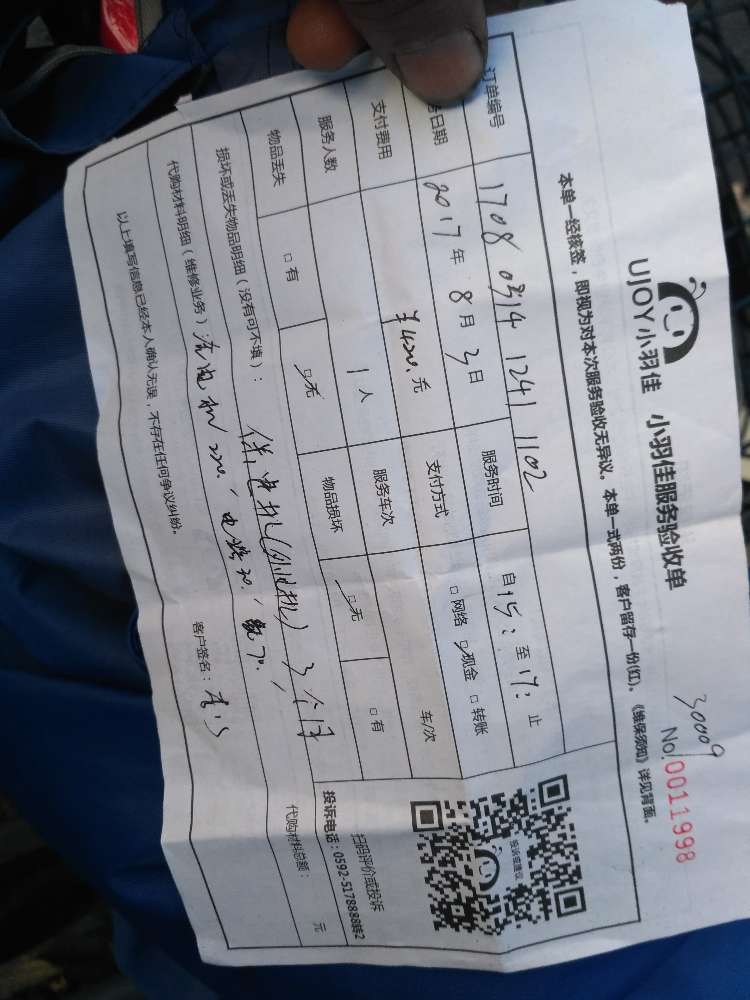 UJOY小羽佳 小羽佳服务验收单
30009
No 00011998
本单一经核签，即视为对本次服务验收无异议。本单一式两份，客户留存一份(红)。《维保须知》详见背面。
订单编号 1708 0314 1241 1102
务日期 2017年 8月 3日 服务时间 自15：至17：止
支付费用 ¥420.元 支付方式 □网络 ☑现金 □转账
服务人数 1人 服务车次 车/次
物品丢失 □有 ☑无 物品损坏 ☑无 □有
损坏或丢失物品明细（没有可不填）： 保 电机(外电机) 3个月
代购材料明细（维修业务） 电机 220. 电 30.
代购材料总额： 元
以上填写信息已经本人确认无误，不存在任何争议纠纷。
客户签名：
投诉或建议
扫码评价或投诉
投诉电话：0592-5178888转2